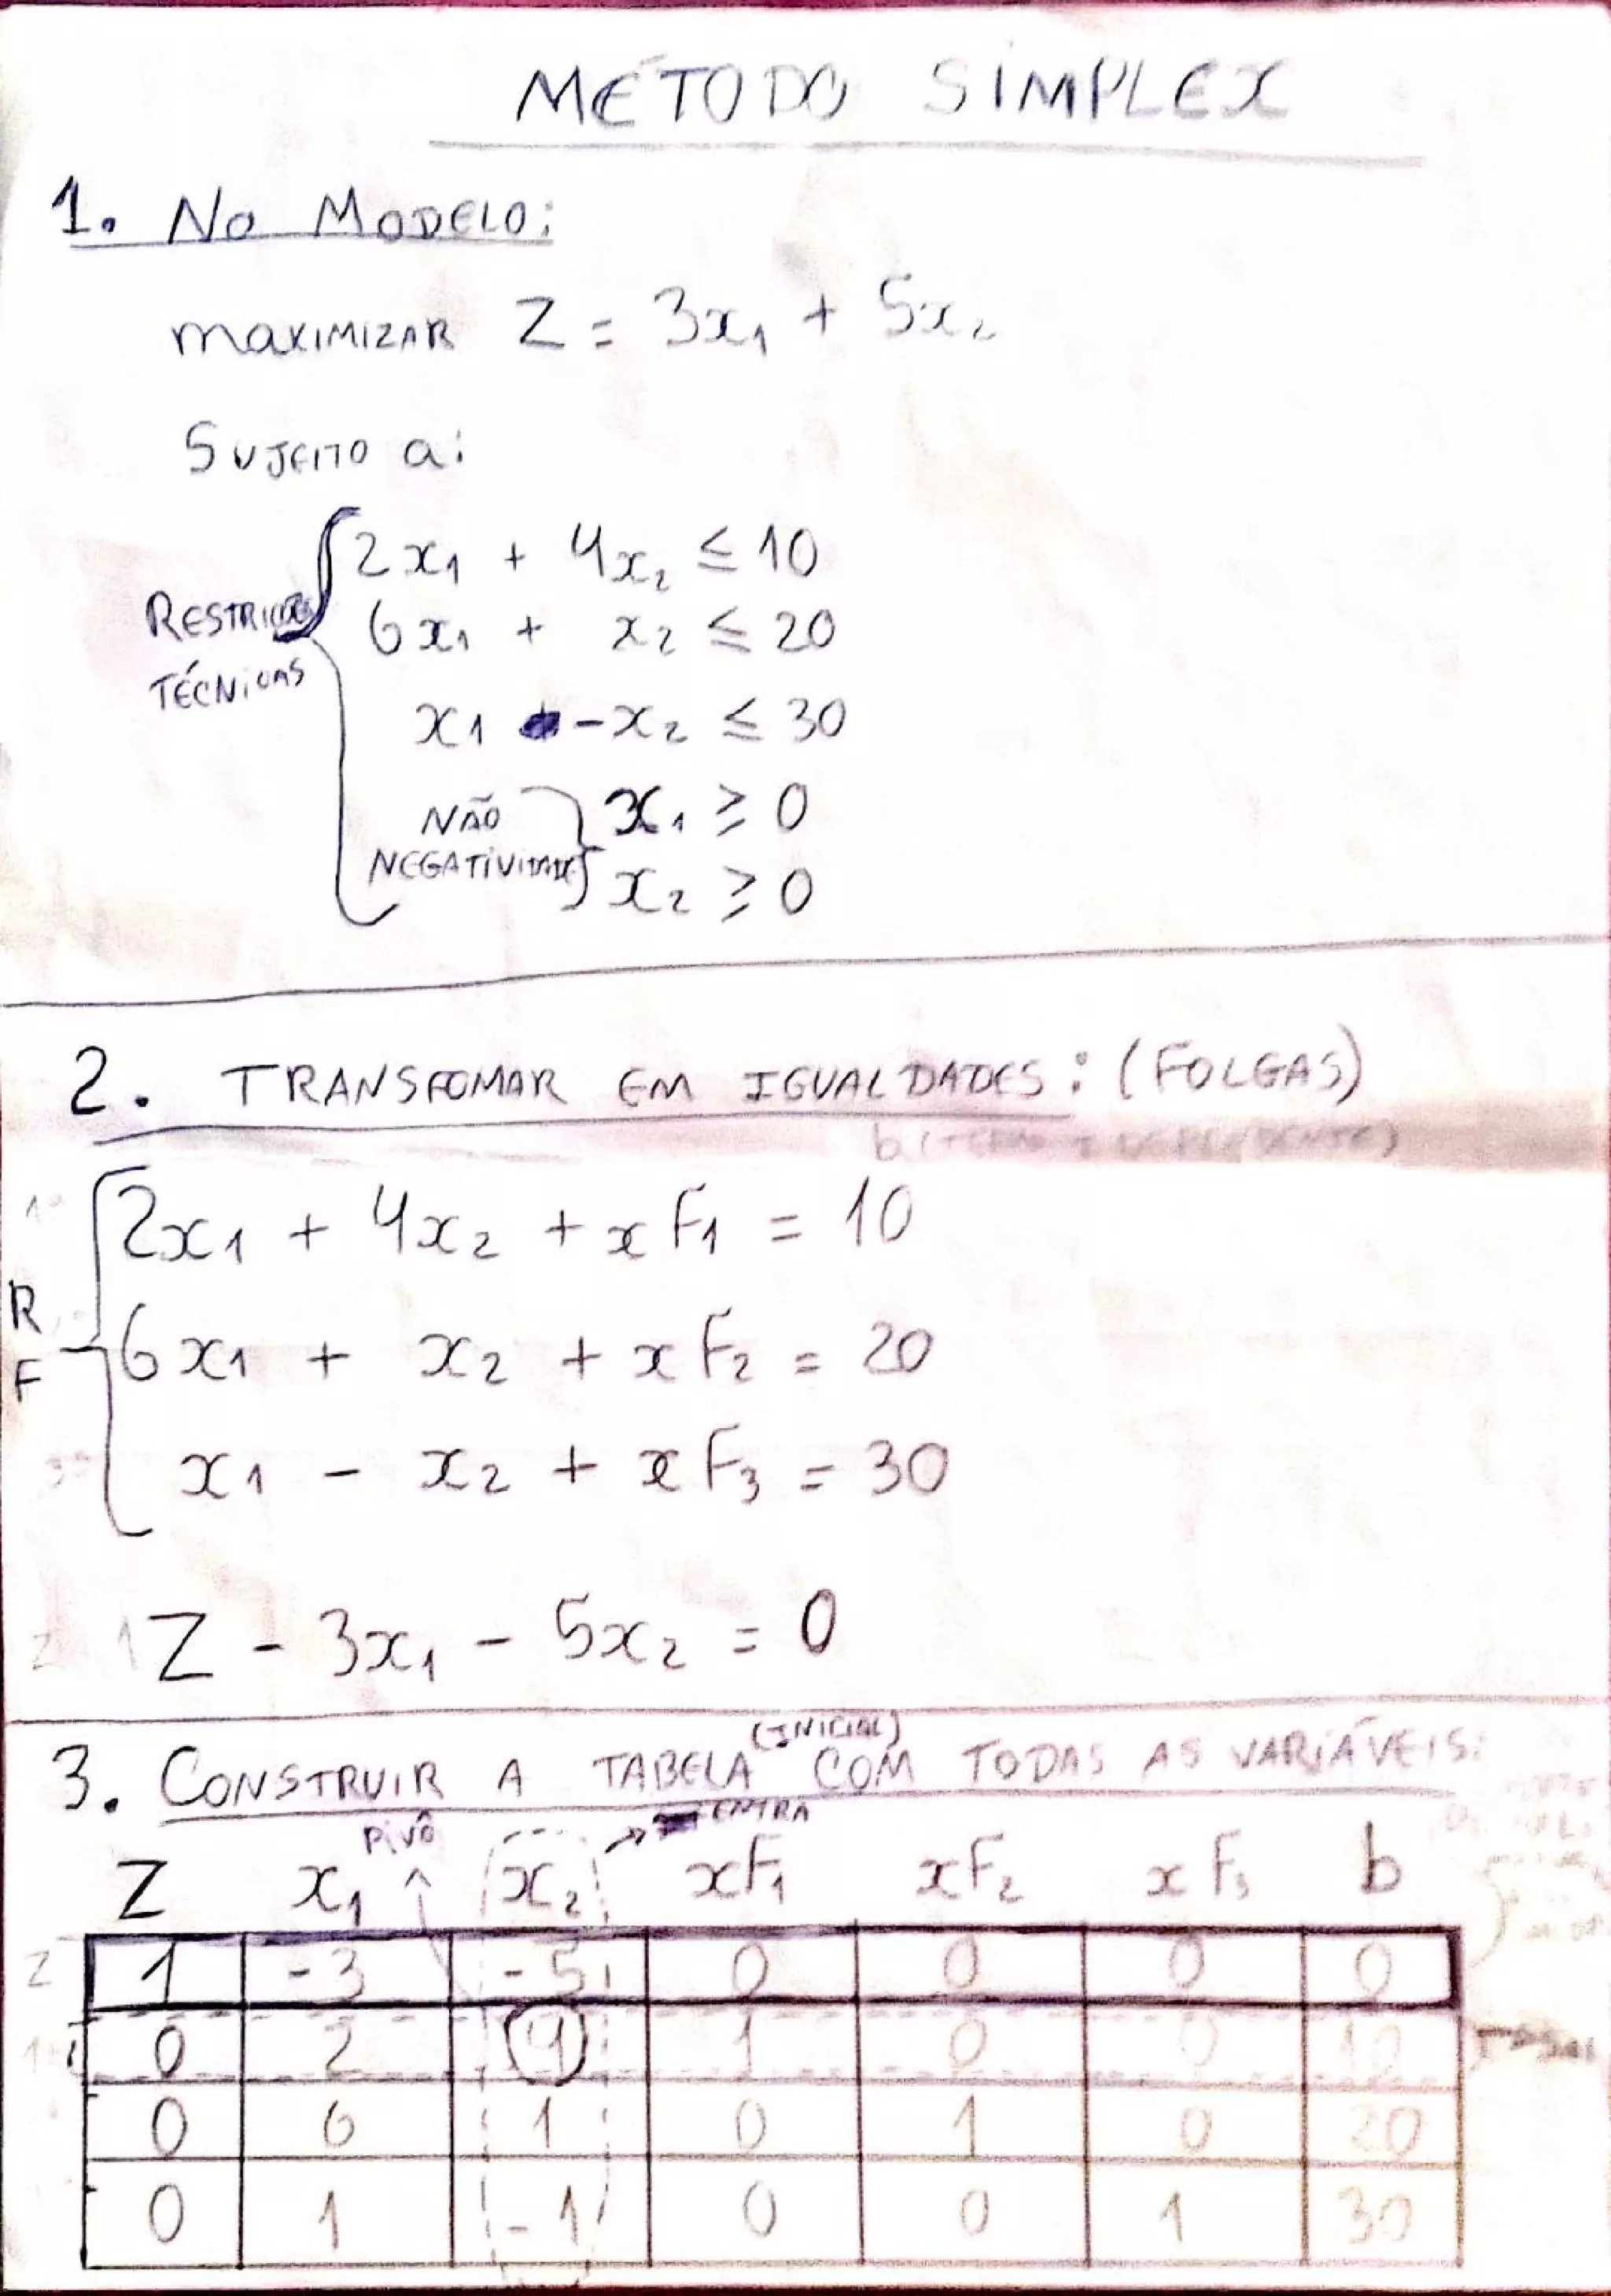 MÉTODO SIMPLEX
1. NO MODELO:
MAXIMIZAR Z = 3x₁ + 5x₂
SUJEITO a:
2x₁ + 4x₂ ≤ 10
RESTRIÇÕES
TÉCNICAS
6x₁ + x₂ ≤ 20
x₁ - x₂ ≤ 30
NÃO
NEGATIVIDADE
x₁ ≥ 0
x₂ ≥ 0
2. TRANSFOMAR EM IGUALDADES: (FOLGAS)
b (TERMO INDEPENDENTE)
2x₁ + 4x₂ + xF₁ = 10
R
F
6x₁ + x₂ + xF₂ = 20
x₁ - x₂ + xF₃ = 30
Z 1Z - 3x₁ - 5x₂ = 0
3. CONSTRUIR A TABELA (INICIAL) COM TODAS AS VARIÁVEIS:
PIVÔ → ENTRA
Z x₁ x₂ xF₁ xF₂ xF₃ b
Z 1 -3 -5 0 0 0 0
0 2 4 1 0 0 10 → SAI
0 6 1 0 1 0 20
0 1 -1 0 0 1 30